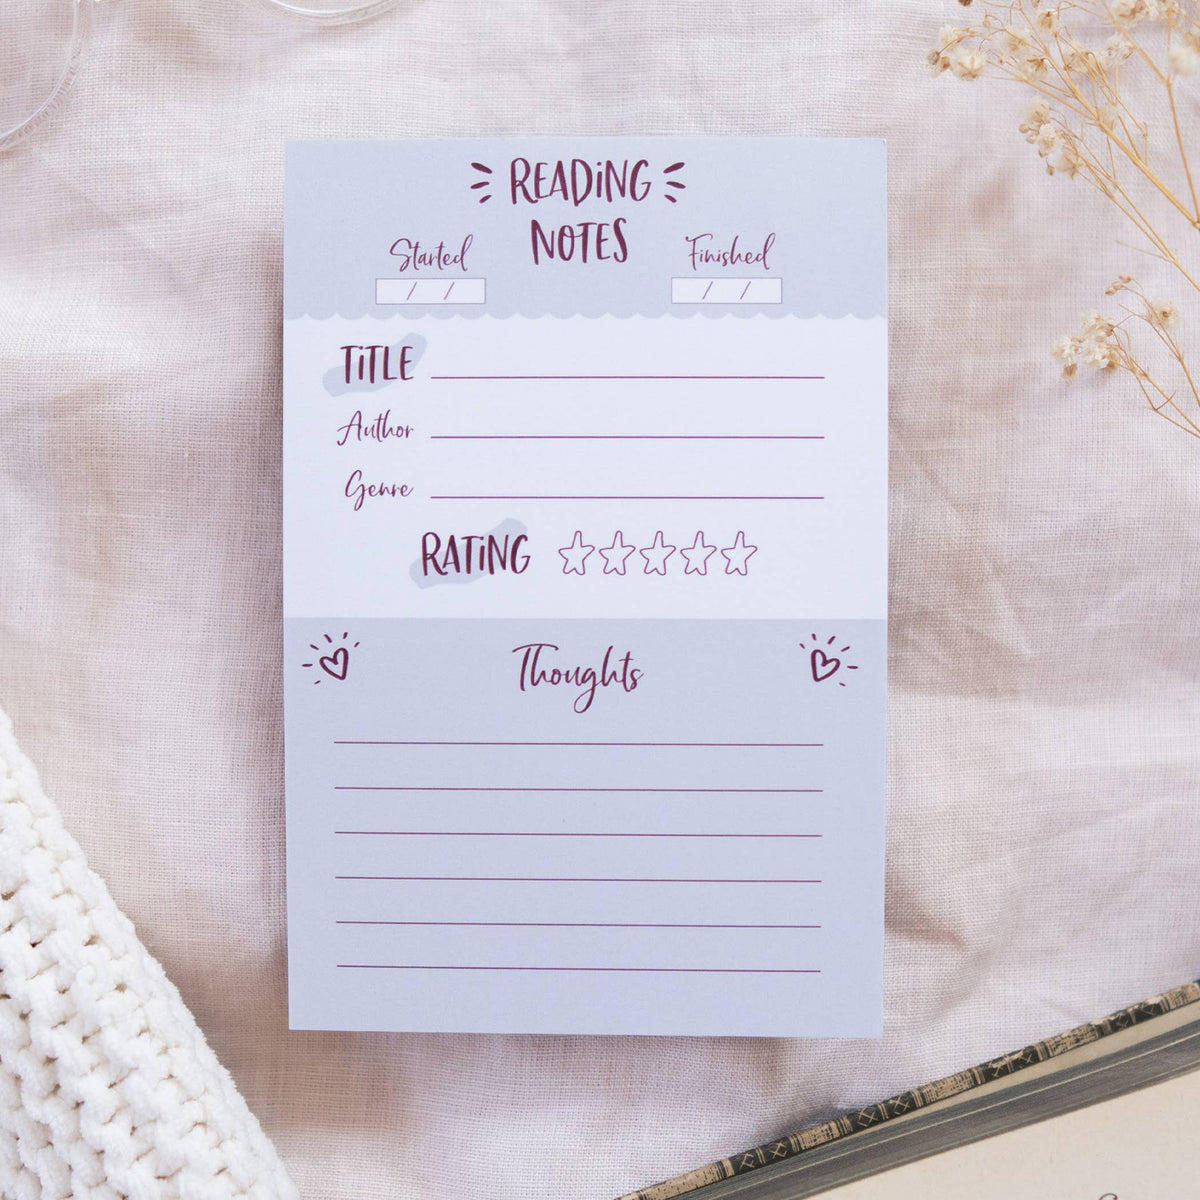 READING
NOTES
Started Finished
/ / / /
TITLE
Author
Genre
RATING
Thoughts